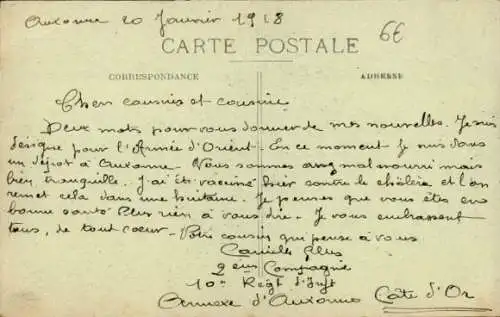 Auxonne 20 Janvier 1918
6€
CARTE POSTALE
CORRESPONDANCE
ADRESSE
Chers cousins et cousine
Deux mots pour vous donner de mes nouvelles. Je suis
désigné pour l'Armée d'Orient. En ce moment je suis dans
un dépôt à Auxonne. Nous sommes assez mal nourri mais
bien tranquille. J'ai été vacciné hier contre le choléra et l'on
remet cela dans une huitaine. Je pense que vous êtes en
bonne santé. Plus rien à vous dire. Je vous embrassent
tous, de tout coeur. Votre cousin qui pense à vous
Camille
2ème Compagnie
10e Regt d'Inft
Annexe d'Auxonne Côte d'Or